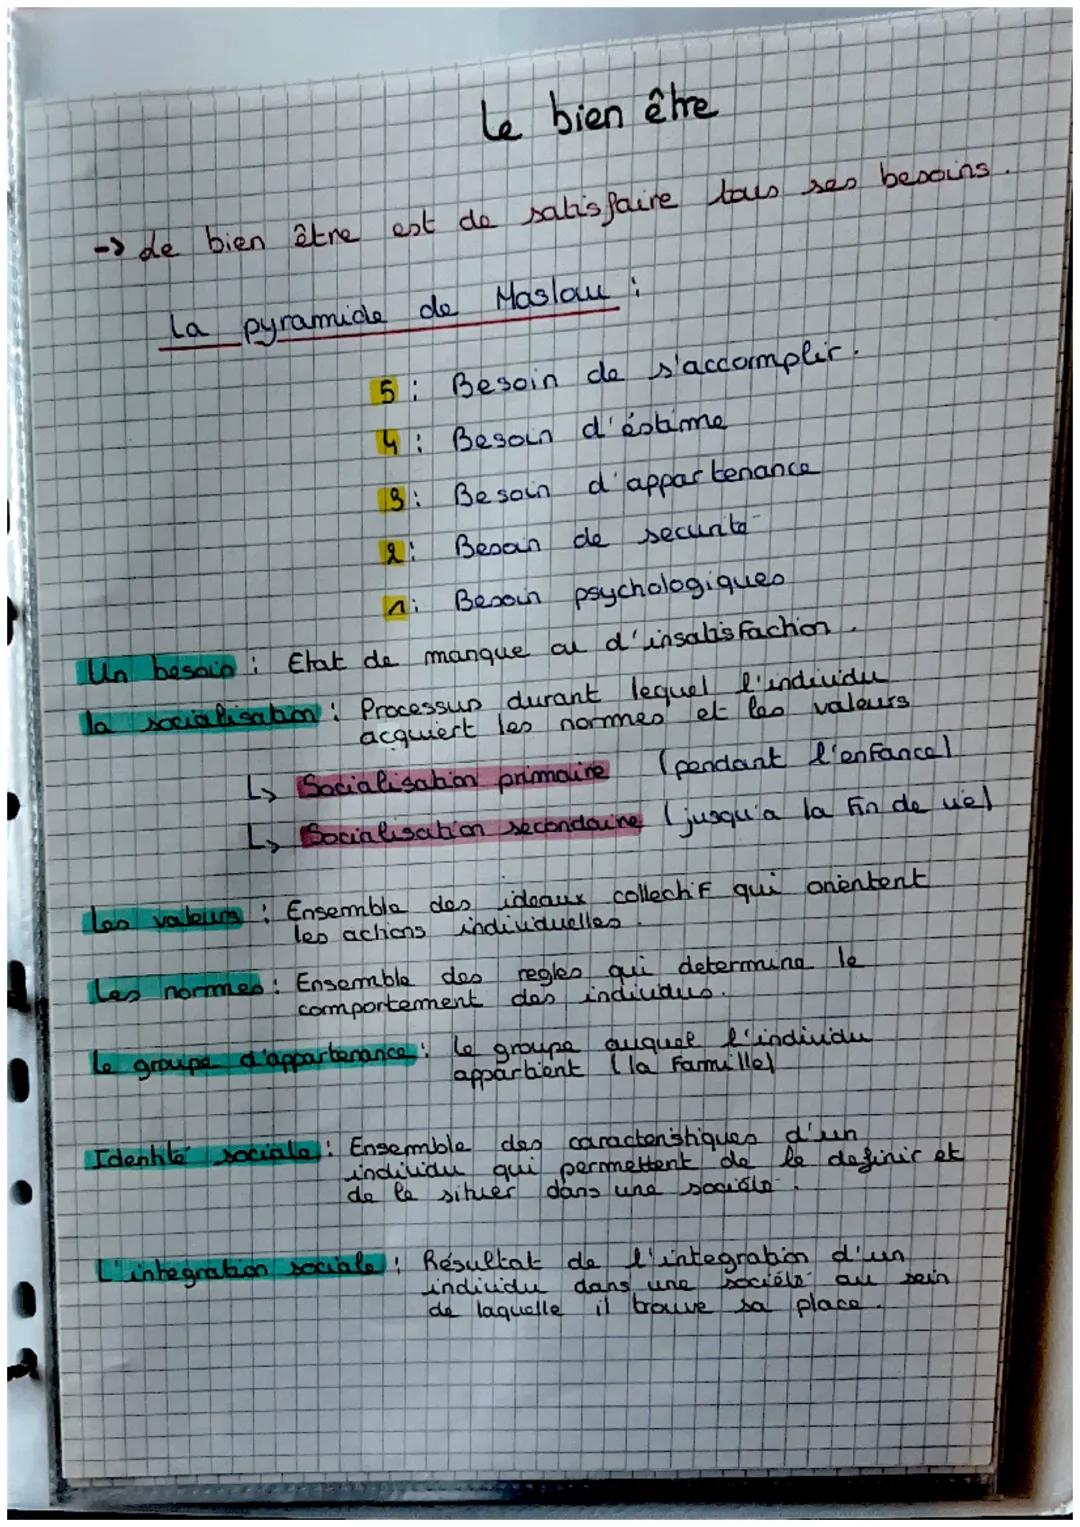 Le bien être
-> Le bien être est de satisfaire tous ses besoins.
La pyramide de Maslow :
5 : Besoin de s'accomplir.
4 : Besoin d'éstime
3 : Besoin d'appartenance
2 : Besoin de securité
1 : Besoin psychologiques
Un besoin : Etat de manque ou d'insatisfaction.
la socialisation : Processus durant lequel l'individu
acquiert les normes et les valeurs
↳ Socialisation primaire (pendant l'enfance)
↳ Socialisation secondaire (jusqu'a la fin de vie)
Les valeurs : Ensemble des ideaux collectif qui orientent
les actions individuelles.
Les normes : Ensemble des regles qui determine le
comportement des individus.
Le groupe d'appartenance : Le groupe auquel l'individu
appartient (la famille)
Identité sociale : Ensemble des caracteristiques d'un
individu qui permettent de le definir et
de le situer dans une société.
L'integration sociale : Résultat de l'integration d'un
individu dans une société au sein
de laquelle il trouve sa place.